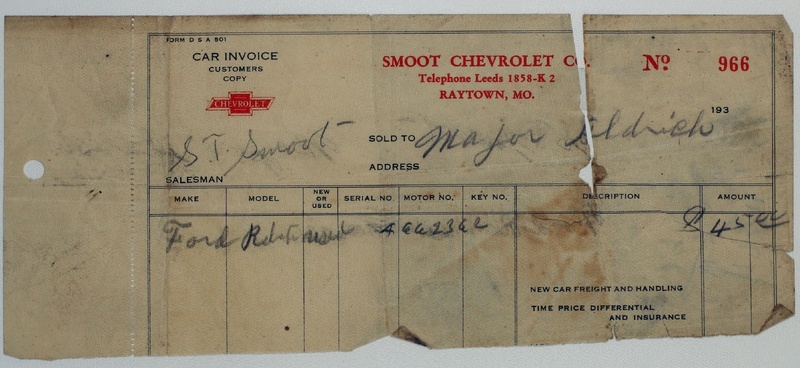 FORM D S A 501
CAR INVOICE
CUSTOMERS
COPY
CHEVROLET
SMOOT CHEVROLET CO.
Telephone Leeds 1858-K 2
RAYTOWN, MO.
No 966
193
S.T. Smoot
SALESMAN
SOLD TO Major Eldrich
ADDRESS
MAKE MODEL NEW OR USED SERIAL NO. MOTOR NO. KEY NO. DESCRIPTION AMOUNT
Ford used $ 45
NEW CAR FREIGHT AND HANDLING
TIME PRICE DIFFERENTIAL
AND INSURANCE